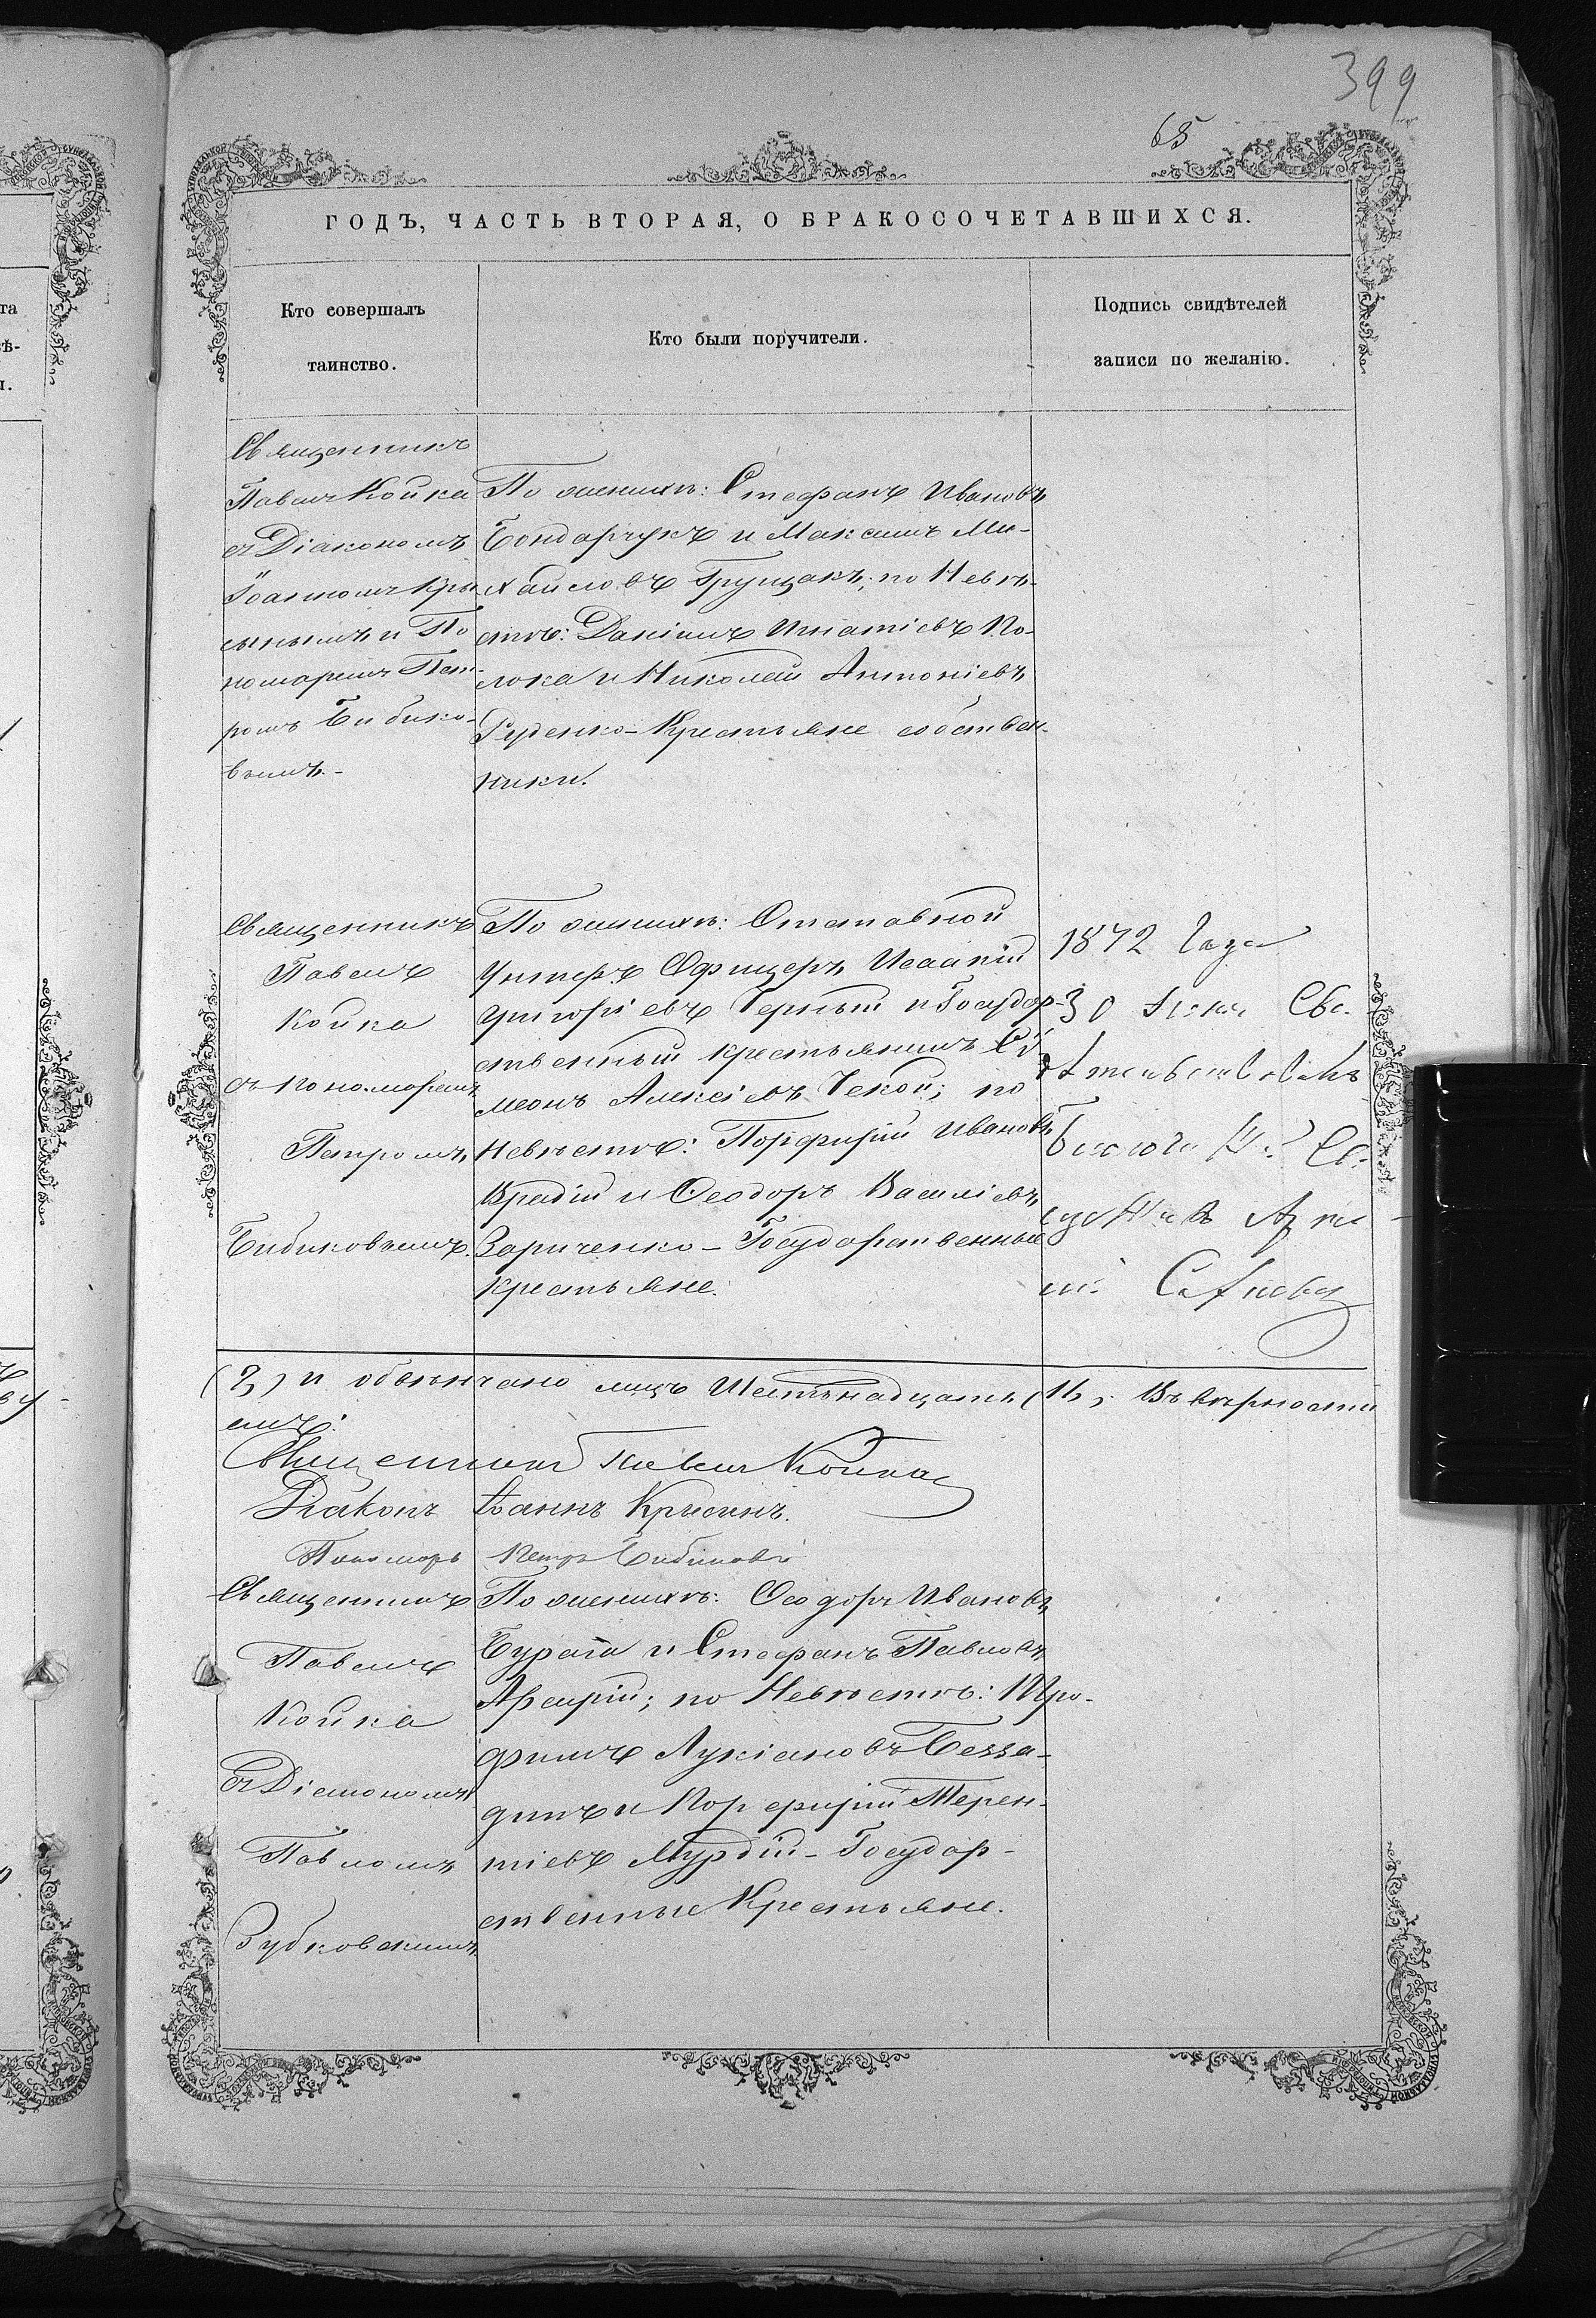 399
65
ГОДЪ, ЧАСТЬ ВТОРАЯ, О БРАКОСОЧЕТАВШИХСЯ.
Кто совершалъ
таинство.
Кто были поручители.
Подпись свидѣтелей
записи по желанію.
Священникъ
Павелъ Койка
съ Діакономъ
Іоанномъ Кры
сынымъ и По
номаремъ Пет-
ромъ Бибико-
вымъ.-
По женихѣ: Стефанъ Ивановъ
Бондарчукъ и Максимъ Ми-
хайловъ Грущакъ; по Невѣ-
стѣ: Даніилъ Игнатіевъ Ко-
лока и Николай Антоніевъ
Руденко-Крестьяне собствен-
ники.
Священникъ
Павелъ
Койка
съ пономаремъ
Петромъ
Бибиковымъ.
По женихѣ: Отставной
Унтеръ Офицеръ Исаакій
Григоріевъ Черный и Государ-
ственный крестьянинъ Сѵ-
меонъ Алексіевъ Чекой; по
Невѣстѣ: Порфирій Ивановъ
Врадій и Ѳеодоръ Василіевъ
Зариченко - Государственные
крестьяне.
1872 Года
30
(2) и обвѣнчано лицъ Шестьнадцать (16). Въ вѣрности
семъ:
Священникъ Павелъ Койка
Діаконъ Іоаннъ Крысинъ.
Пономарь Петръ Бибиковъ
Священникъ
Павелъ
Койка
съ Діакономъ
Павломъ
Зубковскимъ
По женихѣ: Ѳеодоръ Ивановъ
Бурага и Стефанъ Павловъ
по Невѣстѣ: Тро-
фимъ Лукіановъ Безза-
Порфирій Терен-
тіевъ Мурдій - Государ-
ственные Крестьяне.